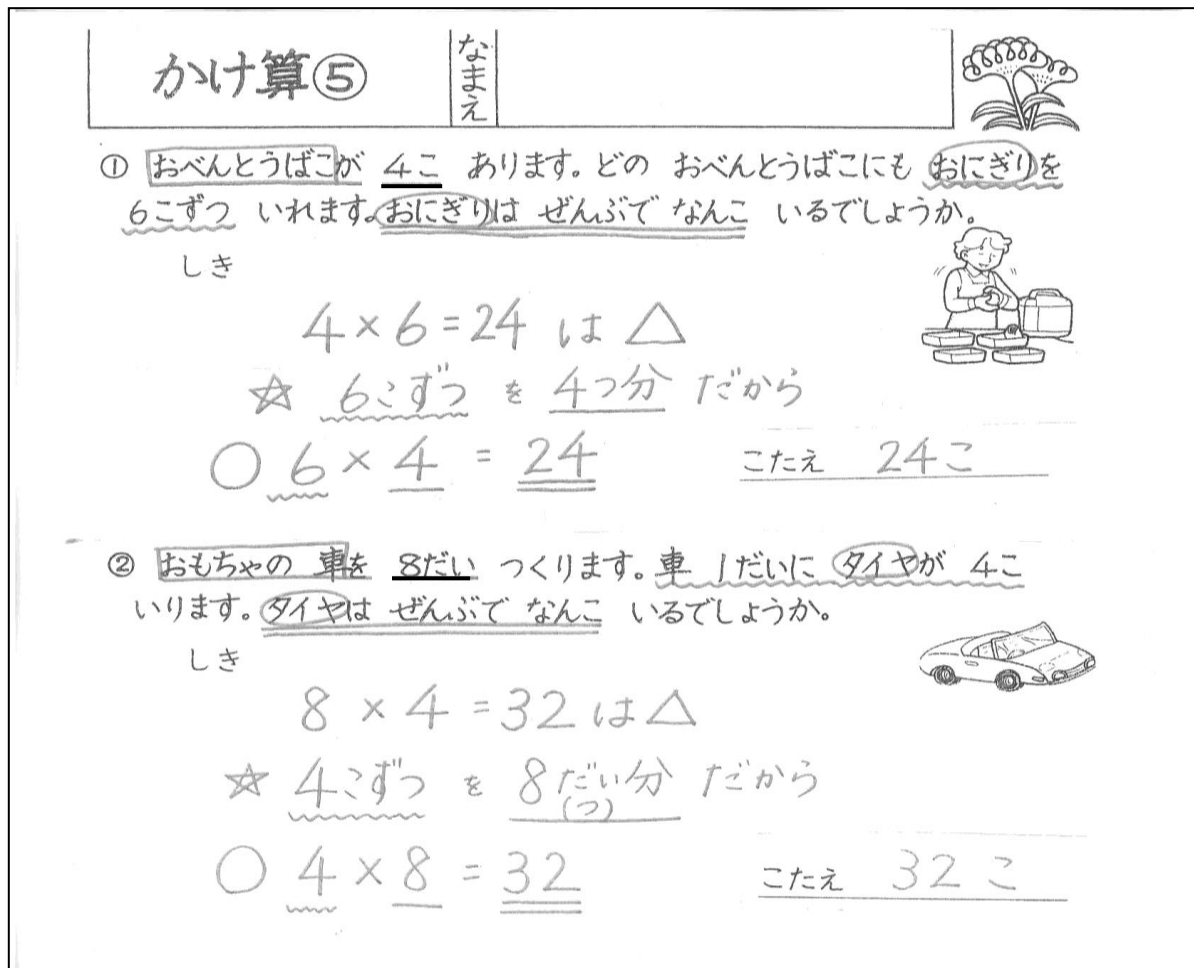 かけ算⑤ なまえ
① おべんとうばこが 4こ あります。どの おべんとうばこにも おにぎりを
6こずつ いれます。おにぎりは ぜんぶで なんこ いるでしょうか。
しき
4×6=24 は △
☆ 6こずつ を 4つ分 だから
○ 6 × 4 = 24 こたえ 24こ
② おもちゃの 車を 8だい つくります。車 1だいに タイヤが 4こ
いります。タイヤは ぜんぶで なんこ いるでしょうか。
しき
8 × 4 = 32 は △
☆ 4こずつ を 8だい分 だから
(つ)
○ 4 × 8 = 32 こたえ 32こ